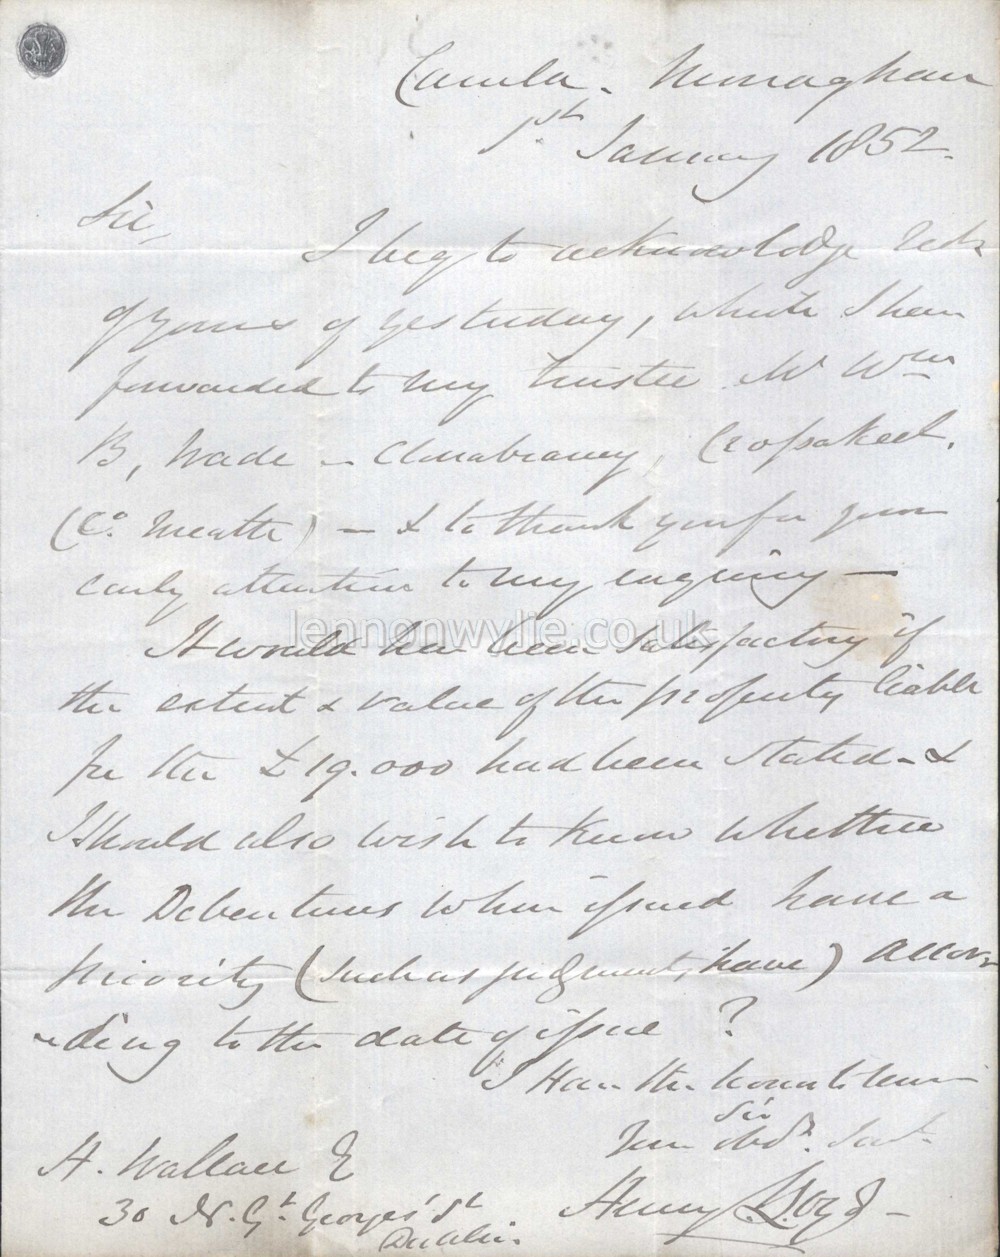 Camla. Monaghan
1st January 1852.
Sir,
I beg to acknowledge
of yours of yesterday, which I have
forwarded to my trustee Mr Wm
B, Wade - Clonabraney, Crossakeel.
(Co. Meath) - & to thank you for your
early attention to my enquiry -
lennonwylie.co.uk
It would have been satisfactory if
the extent & value of the property liable
for the £19.000 had been stated - &
I should also wish to know whether
the Debentures when issued have a
priority (such as judgments have) accor-
-ding to the date of issue ?
I Have the honor to be
Sir
Your Obdt. Servt.
H. Wallace E
Henry Lloyd -
30 N. Gt. Georges' St
Dublin.